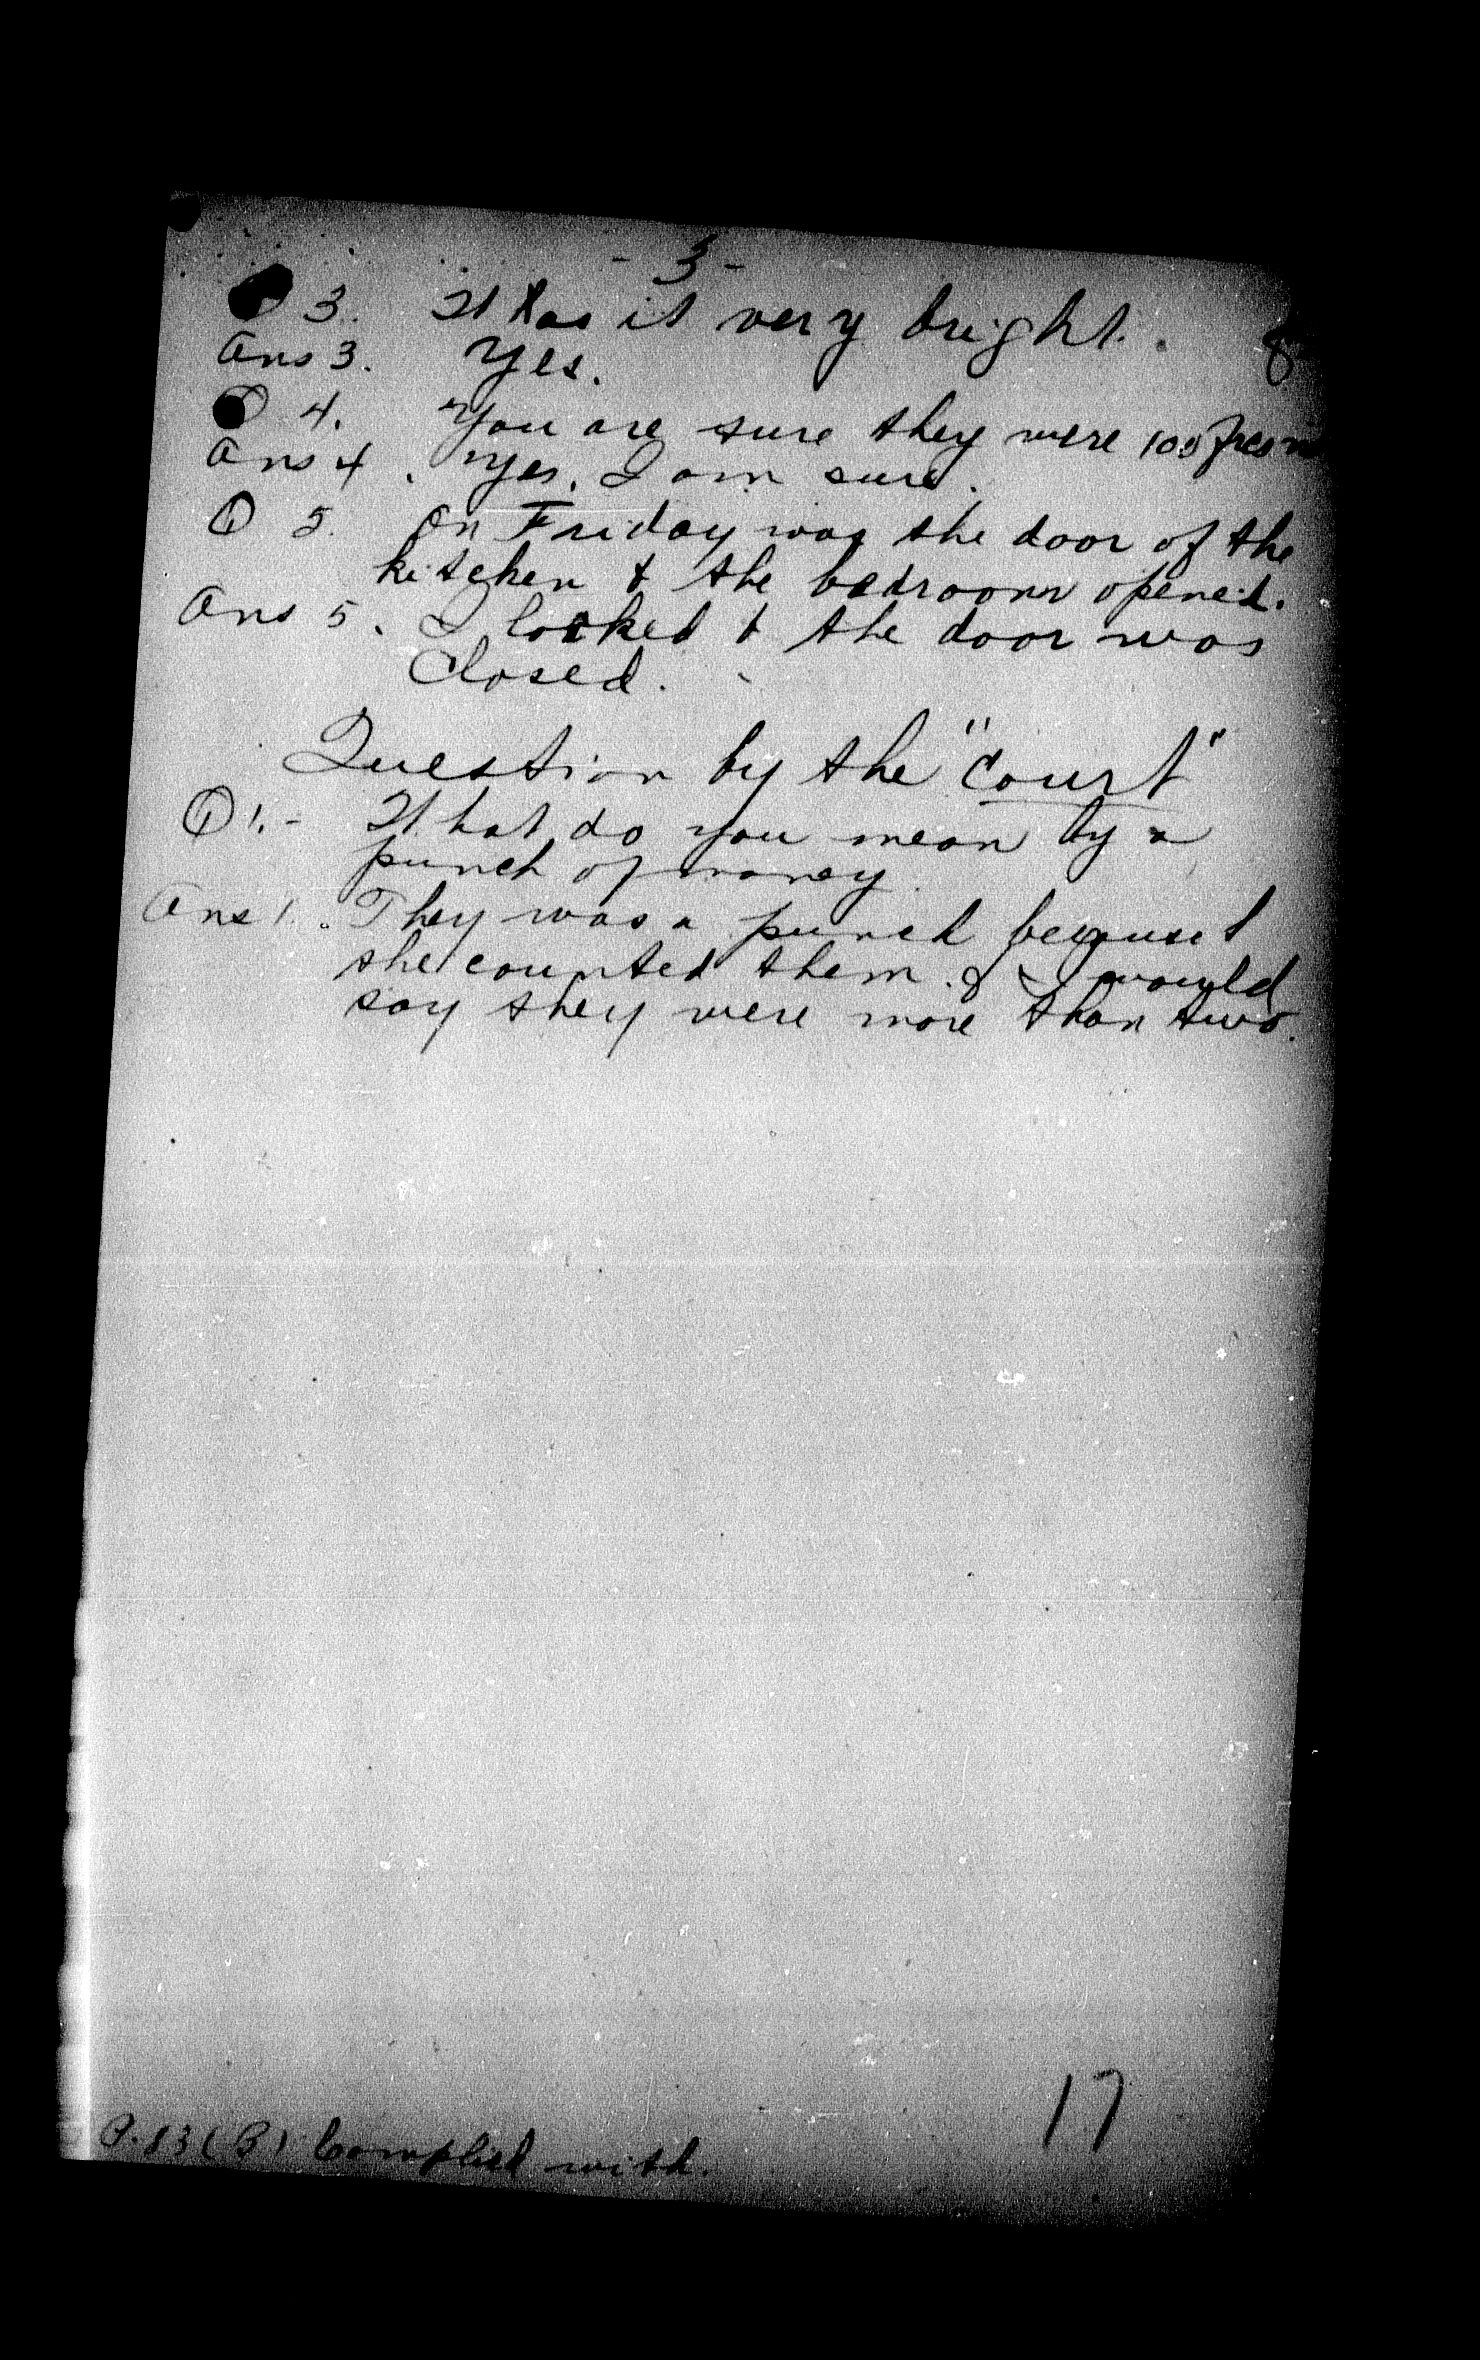 - 3 -
Q 3. Was it very bright. 8
Ans 3. Yes.
Q 4. You are sure they were 100 frcs
Ans 4. Yes, I am sure.
Q 5. On Friday was the door of the
kitchen & the bedroom opened.
Ans 5. I looked & the door was
closed.
Question by the "Court"
Q 1.- What do you mean by a
punch of money.
Ans 1. They was a punch because
she counted them & I would
say they were more than two.
17
P. 83 (B) Complied with.